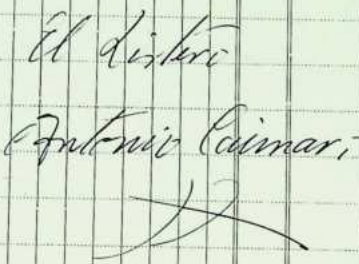 El Listero
Antonio Caimari